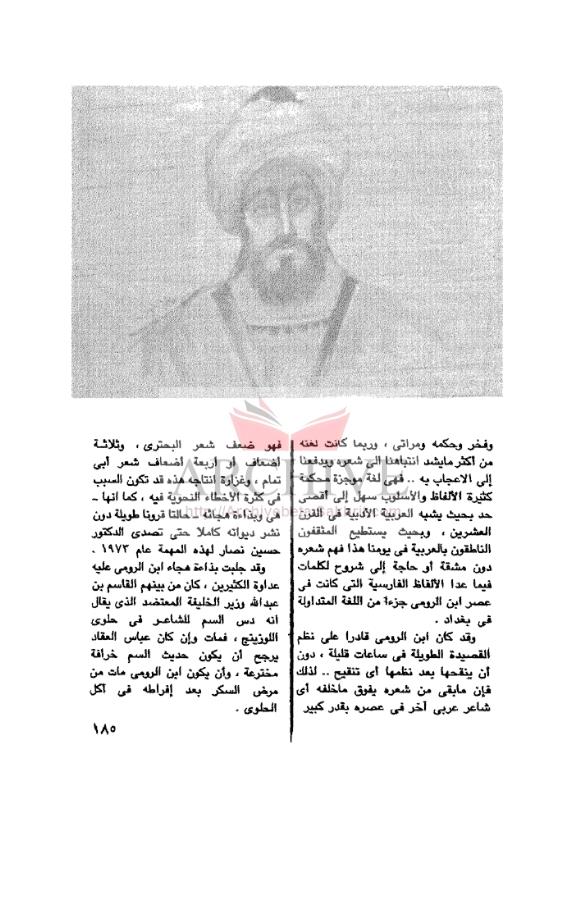 وفخر وحكمه ومراثى ، وربما كانت لغته
من أكثر مايشد انتباهنا الى شعره ويدفعنا
إلى الاعجاب به .. فهى لغة موجزة محكمة
كثيرة الألفاظ والأسلوب سهل إلى أقصى
حد بحيث يشبه العربية الأدبية فى القرن
العشرين ، وبحيث يستطيع المثقفون
الناطقون بالعربية فى يومنا هذا فهم شعره
دون مشقة أو حاجة إلى شروح لكلمات
فيما عدا الألفاظ الفارسية التى كانت فى
عصر ابن الرومى جزءة من اللغة المتداولة
فى بغداد .
وقد كان ابن الرومى قادرا على نظم
القصيدة الطويلة فى ساعات قليلة ، دون
أن ينقحها بعد نظمها أى تنقيح .. لذلك
فإن مابقى من شعره يفوق ماخلفه أى
شاعر عربى آخر فى عصره بقدر كبير
فهو ضعف شعر البحترى ، وثلاثة
أضعاف أو أربعة أضعاف شعر أبى
تمام ، وغزارة انتاجه هذه قد تكون السبب
فى كثرة الأخطاء النحوية فيه ، كما انها -
هى وبذاءة هجائه - حالتا قرونا طويلة دون
نشر ديوانه كاملا حتى تصدى الدكتور
حسين نصار لهذه المهمة عام ١٩٧٣ .
وقد جلبت بذاءة هجاء ابن الرومى عليه
عداوة الكثيرين ، كان من بينهم القاسم بن
عبدالله وزير الخليفة المعتضد الذى يقال
انه دس السم للشاعر فى حلوى
اللوزينج ، فمات وإن كان عباس العقاد
يرجح أن يكون حديث السم خرافة
مخترعة ، وأن يكون ابن الرومى مات من
مرض السكر بعد إفراطه فى أكل
الحلوى .
١٨٥
ARCHIVE